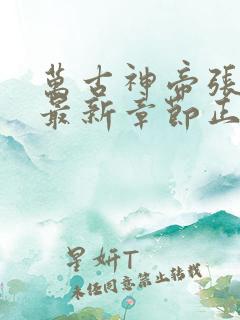 萬古神帝張
最新章節正
星妍T
未经同意禁止转载